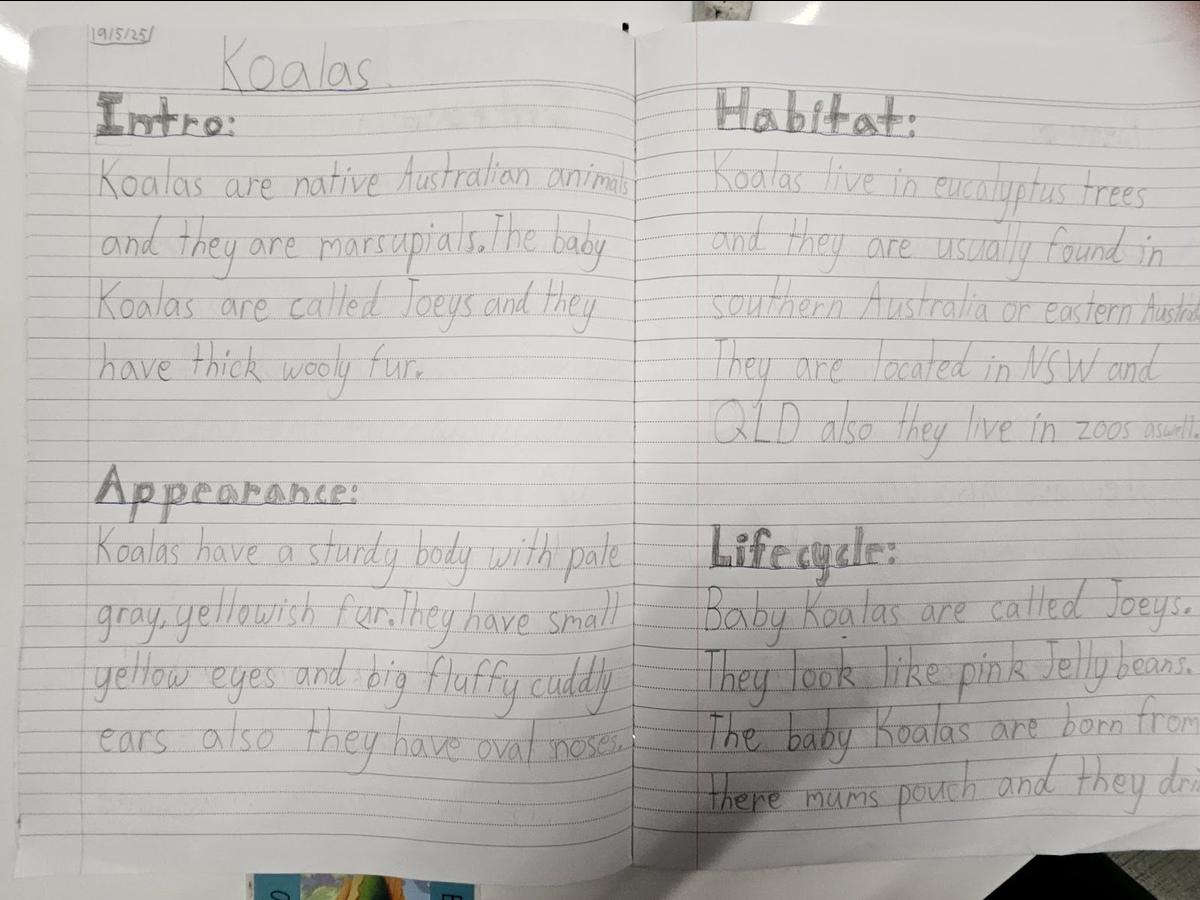 19/5/25
Koalas
Intro:
Koalas are native Australian animals
and they are marsupials. The baby
Koalas are called Joeys and they
have thick wooly fur.
Appearance:
Koalas have a sturdy body with pale
gray, yellowish fur. They have small
yellow eyes and big fluffy cuddly
ears also they have oval noses.
Habitat:
Koalas live in eucalyptus trees
and they are usually found in
southern Australia or eastern
They are located in NSW and
QLD also they live in zoos aswell.
Lifecycle:
Baby Koalas are called Joeys.
They look like pink Jellybeans.
The baby Koalas are born from
there mums pouch and they